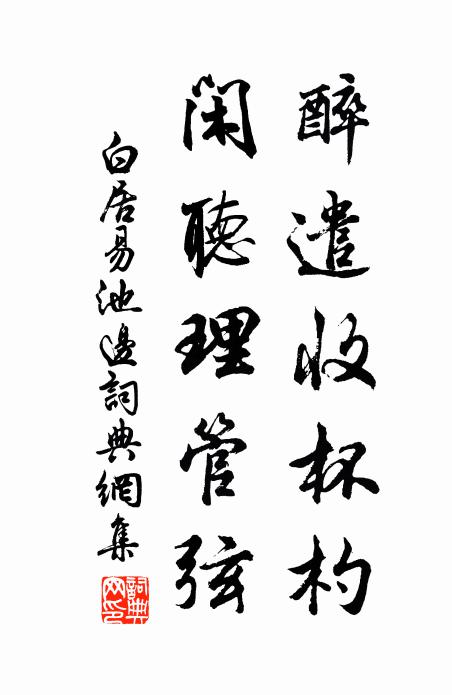 醉遣收杯杓
閑聽理管弦
白居易池邊詞典網集
詞典网印